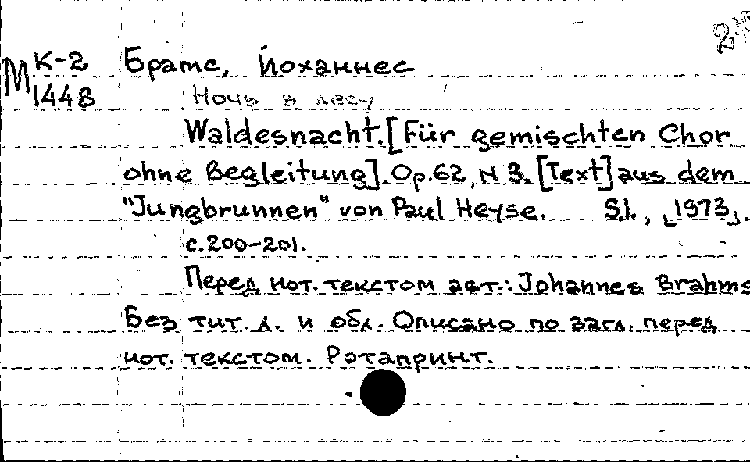 2
М К-2
1448
Брамс, Йоханнес
Ночь в лесу
Waldesnacht. [Für gemischten Chor
ohne Begleitung]. Op. 62, N 3. [Text] aus dem
"Jungbrunnen" von Paul Heyse. S.l., [1973].
с. 200-201.
Перед нот. текстом авт.: Johannes Brahms
Без тит. л. и обл. Описано по загл. перед
нот. текстом. Ротапринт.